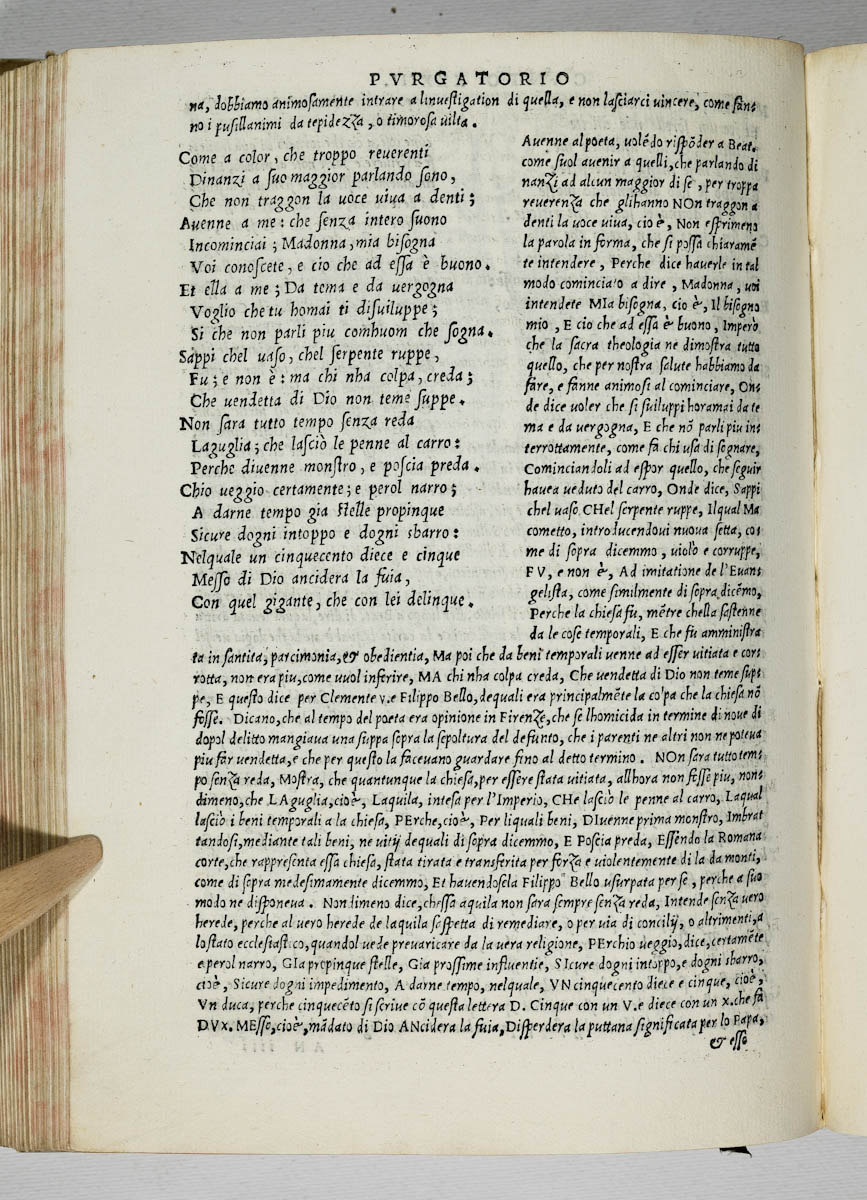 PVRGATORIO
na, dobbiamo animosamente intrare a linuestigation di quella, e non lasciarci uincere, come fan-
no i pusillanimi da tepidezza, o timorosa uilta.
Come a color, che troppo reuerenti
Dinanzi a suo maggior parlando sono,
Che non traggon la uoce uiua a denti;
Auenne a me: che senza intero suono
Incominciai; Madonna, mia bisogna
Voi conoscete, e cio che ad essa è buono.
Et ella a me; Da tema e da uergogna
Voglio che tu homai ti disuiluppe;
Si che non parli piu comhuom che sogna.
Sappi chel uaso, chel serpente ruppe,
Fu; e non è: ma chi nha colpa, creda;
Che uendetta di Dio non teme suppe.
Non sara tutto tempo senza reda
Laguglia; che lasciò le penne al carro:
Perche diuenne monstro, e poscia preda.
Chio ueggio certamente; e perol narro;
A darne tempo gia stelle propinque
Sicure dogni intoppo e dogni sbarro:
Nelquale un cinquecento diece e cinque
Messo di Dio anciderà la fuia,
Con quel gigante, che con lei delinque.
Auenne al poeta, uolẽdo rispõder a Beat.
come suol auenir a quelli, che parlando di
nanzi ad alcun maggior di se, per troppa
reuerenza che glihanno NOn traggon a
denti la uoce uiua, cio è, Non esprimeno
la parola in forma, che si possa chiaramẽ
te intendere, Perche dice hauerle in tal
modo cominciato a dire, Madonna, uoi
intendete MIa bisogna, cio è, Il bisogno
mio, E cio che ad essa è buono, Imperò
che la sacra theologia ne dimostra tutto
quello, che per nostra salute habbiamo da
fare, e fanne animosi al cominciare, On-
de dice uoler che si suiluppi horamai da te
ma e da uergogna, E che nõ parli piu in-
terrottamente, come fa chi usa di sognare,
Cominciandoli ad espor quello, che seguir
hauea ueduto del carro, Onde dice, Sappi
chel uaso CHel serpente ruppe, Ilqual Ma
cometto, introducendoui nuoua setta, co-
me di sopra dicemmo, uiolò e corruppe,
FV, e non è, Ad imitatione de l'Euan-
gelista, come similmente di sopra dicẽmo,
Perche la chiesa fu, mẽtre chella sostenne
da le cose temporali, E che fu amministra
ta in santita, parcimonia, & obedientia, Ma poi che da beni temporali uenne ad esser uitiata e cor-
rotta, non era piu, come uuol inferire, MA chi nha colpa creda, Che uendetta di Dio non teme sup-
pe, E questo dice per Clemente v. e Filippo Bello, dequali era principalmẽte la colpa che la chiesa nõ
fosse. Dicano, che al tempo del poeta era opinione in Firenze, che se lhomicida in termine di noue di
dopol delitto mangiaua una suppa sopra la sepoltura del defunto, che i parenti ne altri non ne poteua
piu far uendetta, e che per questo la faceuano guardare fino al detto termino. NOn sara tutto tem-
po senza reda, Mostra, che quantunque la chiesa, per essere stata uitiata, allhora non fosse piu, non-
dimeno, che LAguglia, cioè, Laquila, intesa per l'Imperio, CHe lasciò le penne al carro, Laqual
lasciò i beni temporali a la chiesa, PErche, cioè, Per liquali beni, DIuenne prima monstro, Imbrat
tandosi, mediante tali beni, ne uitij dequali di sopra dicemmo, E Poscia preda, Essendo la Romana
corte, che rappresenta essa chiesa, stata tirata e transferita per forza e uiolentemente di la da monti,
come di sopra medesimamente dicemmo, Et hauendosela Filippo Bello usurpata per se, perche a suo
modo ne disponeua. Nondimeno dice, chessa aquila non sara sempre senza reda, Intende senza uero
herede, perche al uero herede de laquila sospetta di remediare, o per uia di concilij, o altrimenti, a
lo stato ecclesiastico, quandol uede preuaricare da la uera religione, PErchio ueggio, dice, certamẽte
e perol narro, GIa propinque stelle, Gia prossime influentie, SIcure dogni intoppo, e dogni sbarro,
cioè, Sicure dogni impedimento, A darne tempo, nelquale, VN cinquecento diece e cinque, cioè,
Vn duca, perche cinquecẽto si scriue cõ questa lettera D. Cinque con un V. e diece con un x. che fa
DVx. MEsso, cioè, mãdato di Dio ANcidera la fuia, Disperdera la puttana significata per lo Papa,
& esso